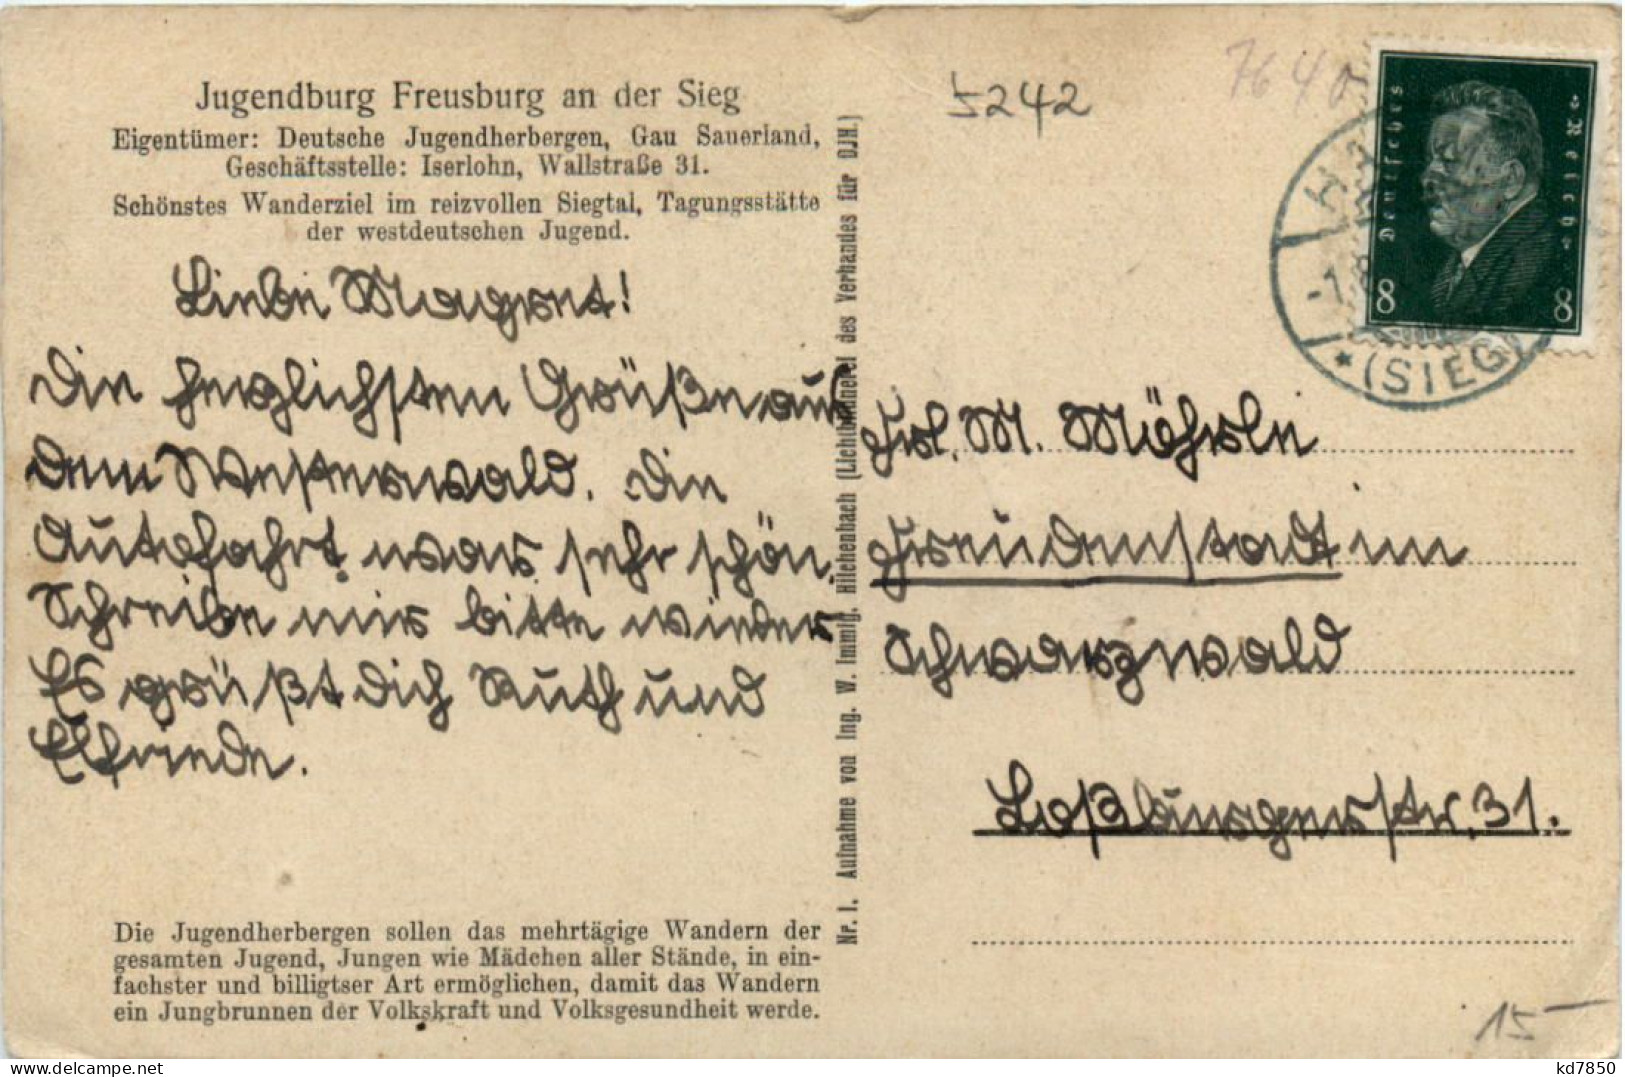 Jugendburg Freusburg an der Sieg
Eigentümer: Deutsche Jugendherbergen, Gau Sauerland,
Geschäftsstelle: Iserlohn, Wallstraße 31.
Schönstes Wanderziel im reizvollen Siegtal, Tagungsstätte
der westdeutschen Jugend.
Liebe Magret!
Die herzlichsten Grüße aus
dem Westerwald. Die
Autofahrt war sehr schön.
Schreibe mir bitte wieder
Es grüßt dich Ruth und
Elfriede.
Die Jugendherbergen sollen das mehrtägige Wandern der
gesamten Jugend, Jungen wie Mädchen aller Stände, in ein-
fachster und billigtser Art ermöglichen, damit das Wandern
ein Jungbrunnen der Volkskraft und Volksgesundheit werde.
Nr. 1. Aufnahme von Ing. W. Immig, Hilchenbach (Lichtbildnerei des Verbandes für DJH.)
5242
7640
Deutsches Reich
8 8
(SIEG)
Frl. M. Möhrle
Freudenstadt im
Schwarzwald
Loßburgerstr. 31.
15
kd7850